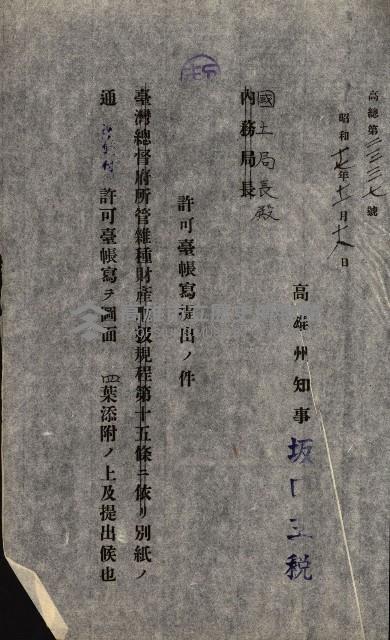 高總第二三三七號
昭和十七年十二月十八日
高雄州知事 坂口主税
國土局長殿
內務局長
許可臺帳寫提出ノ件
臺灣總督府所管雜種財產取扱規程第十五條ニ依リ別紙ノ
通 許可臺帳寫ヲ圖面 四葉添附ノ上及提出候也